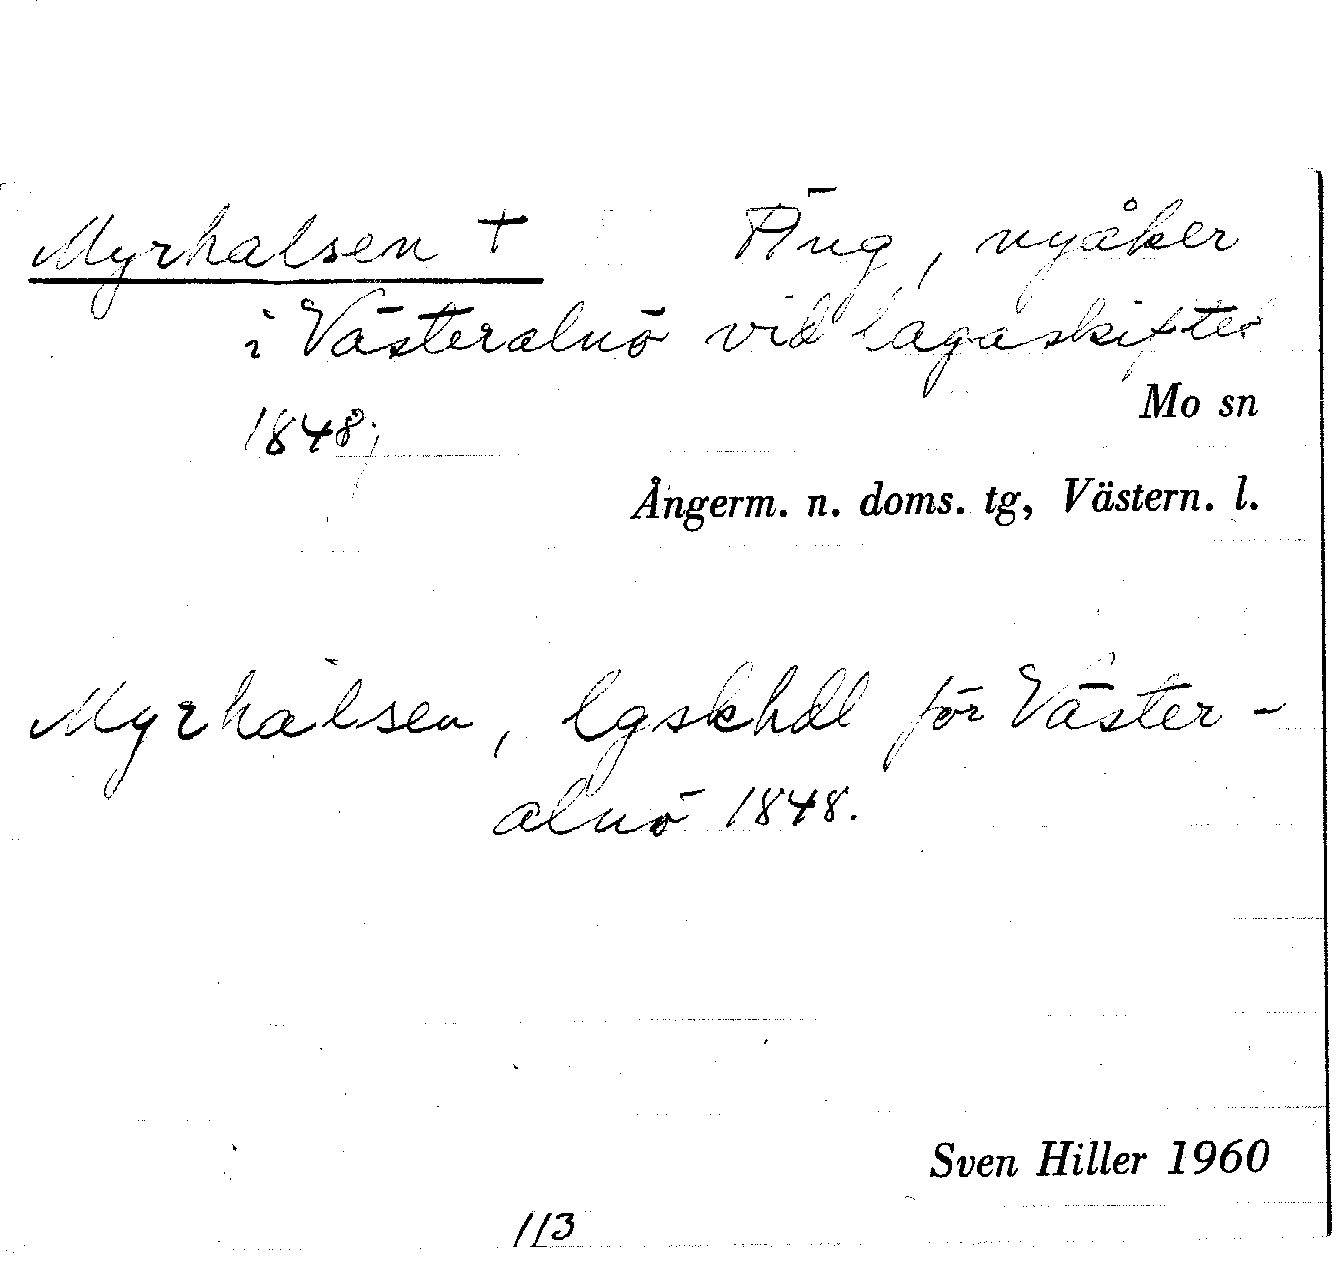 Myrhalsen + Äng, nyåker
i Västeralnö vid lagaskiftet
1848;
Mo sn
Ångerm. n. doms. tg, Västern. l.
Myrhalsen, lgskhdl för Väster-
alnö 1848.
Sven Hiller 1960
113